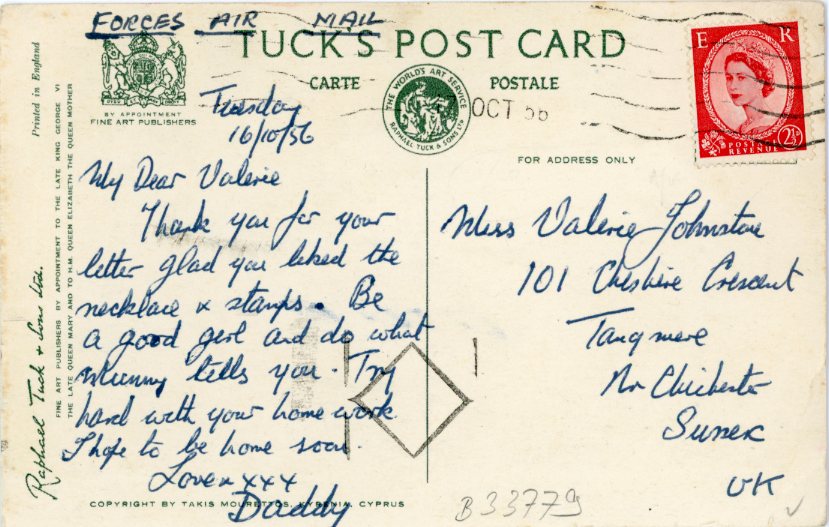 FORCES AIR MAIL
TUCK'S POST CARD
CARTE POSTALE
BY APPOINTMENT
FINE ART PUBLISHERS
THE WORLD'S ART SERVICE
RAPHAEL TUCK & SONS LTD
OCT 56
E R
POSTAGE
REVENUE
2½D
FOR ADDRESS ONLY
Printed in England
FINE ART PUBLISHERS BY APPOINTMENT TO THE LATE KING GEORGE VI
THE LATE QUEEN MARY AND TO H.M. QUEEN ELIZABETH THE QUEEN MOTHER
Raphael Tuck & Sons Ltd.
Tuesday
16/10/56
My Dear Valerie
Thank you for your
letter glad you liked the
necklace & stamps. Be
a good girl and do what
mummy tells you. Try
hard with your home work
I hope to be home soon.
Love xxxx
Daddy
Miss Valerie Johnstone
101 Cheshire Crescent
Tangmere
Nr Chichester
Sussex
UK
COPYRIGHT BY TAKIS MOURETTOS, KYRENIA, CYPRUS
B33779